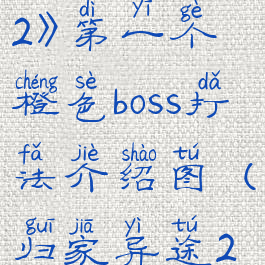 dì yī gè
2》第一个
chéng sè dǎ
橙色boss打
fǎ jiè shào tú
法介绍图（
guī jiā yì tú
归家异途2